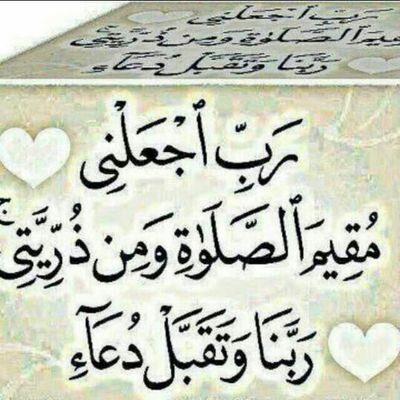 رَبِّ ٱجْعَلْنِى
مُقِيمَ ٱلصَّلَوٰةِ وَمِن ذُرِّيَّتِى ۚ
رَبَّنَا وَتَقَبَّلْ دُعَآءِ
رَبِّ ٱجْعَلْنِى
مُقِيمَ ٱلصَّلَوٰةِ وَمِن ذُرِّيَّتِى
رَبَّنَا وَتَقَبَّلْ دُعَآءِ